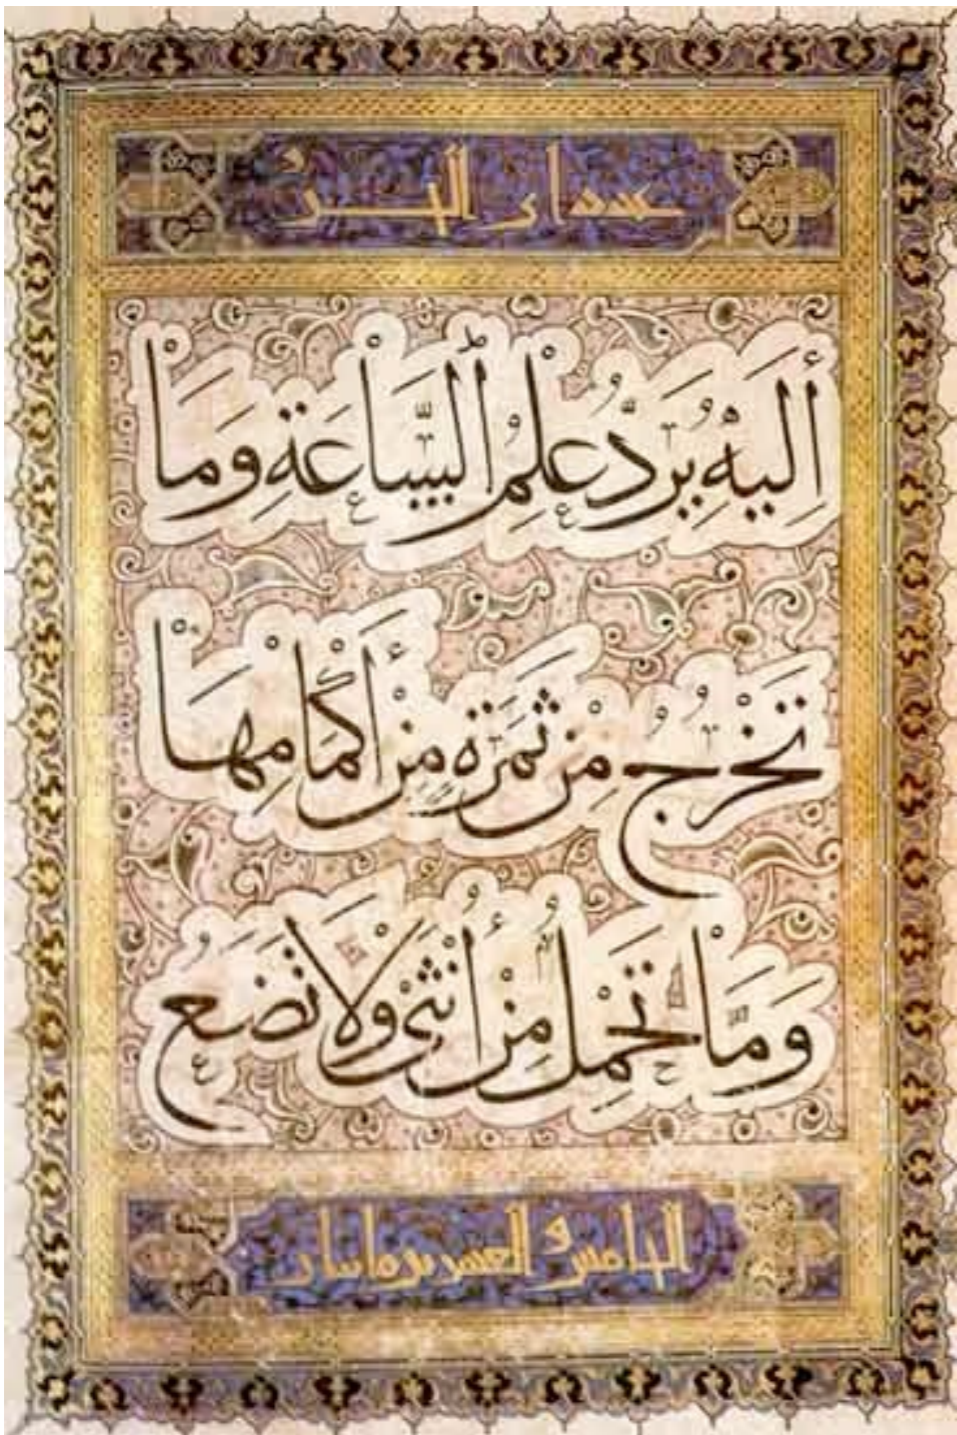 إِلَيْهِ يُرَدُّ عِلْمُ السَّاعَةِ وَمَا
تَخْرُجُ مِنْ ثَمَرَةٍ مِنْ أَكْمَامِهَا
وَمَا تَحْمِلُ مِنْ أُنْثَى وَلَا تَضَعُ
الخامس و العشرين